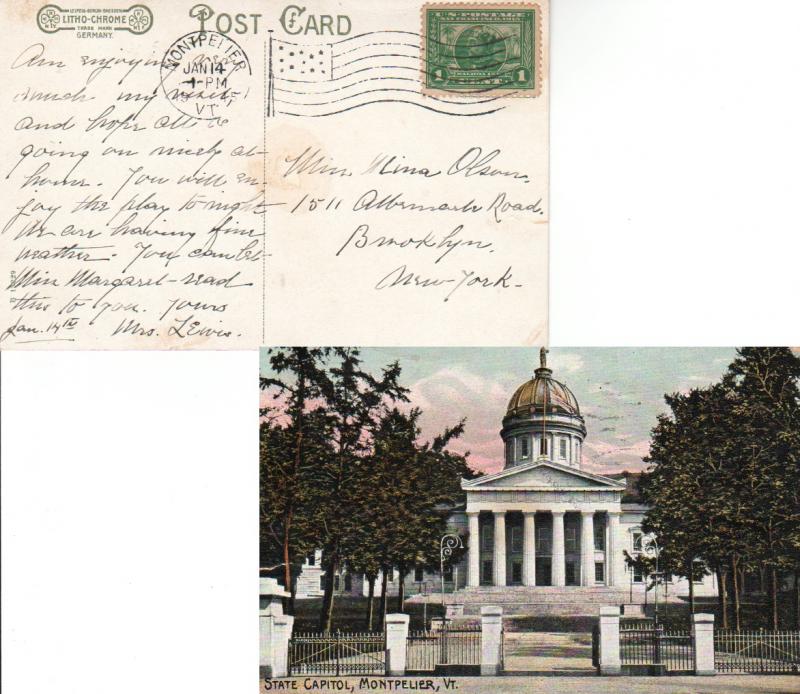 LEIPZIG-BERLIN-DRESDEN
LITHO-CHROME
TRADE MARK
GERMANY.
POST CARD
MONTPELIER
JAN 14
1-PM
VT.
U.S. POSTAGE
SAN FRANCISCO
1 1
Am enjoying
much my visit
and hope all is
going on nicely at-
home. You will en-
joy the play to night
We are having fine
weather. You can let-
Miss Margaret-read
this to you. Yours
Jan. 14th Mrs. Lewis.
Miss Mina Olson.
1511 Albemarle Road.
Brooklyn.
New-York-
STATE CAPITOL, MONTPELIER, VT.